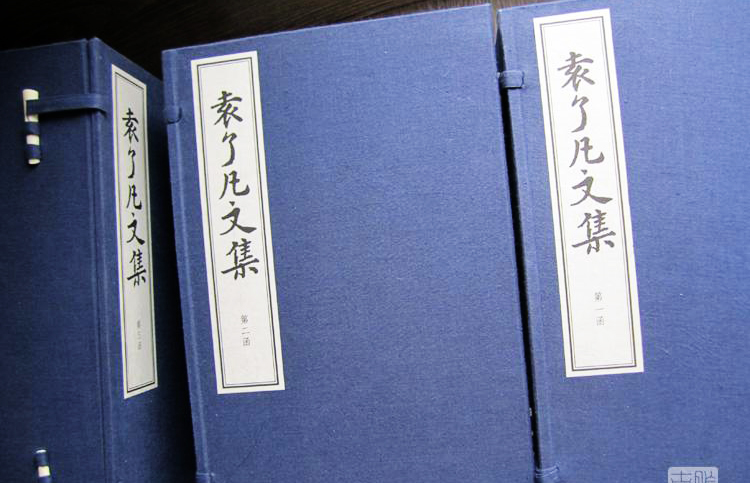 袁了凡文集
第一函
袁了凡文集
第二函
袁了凡文集
第三函